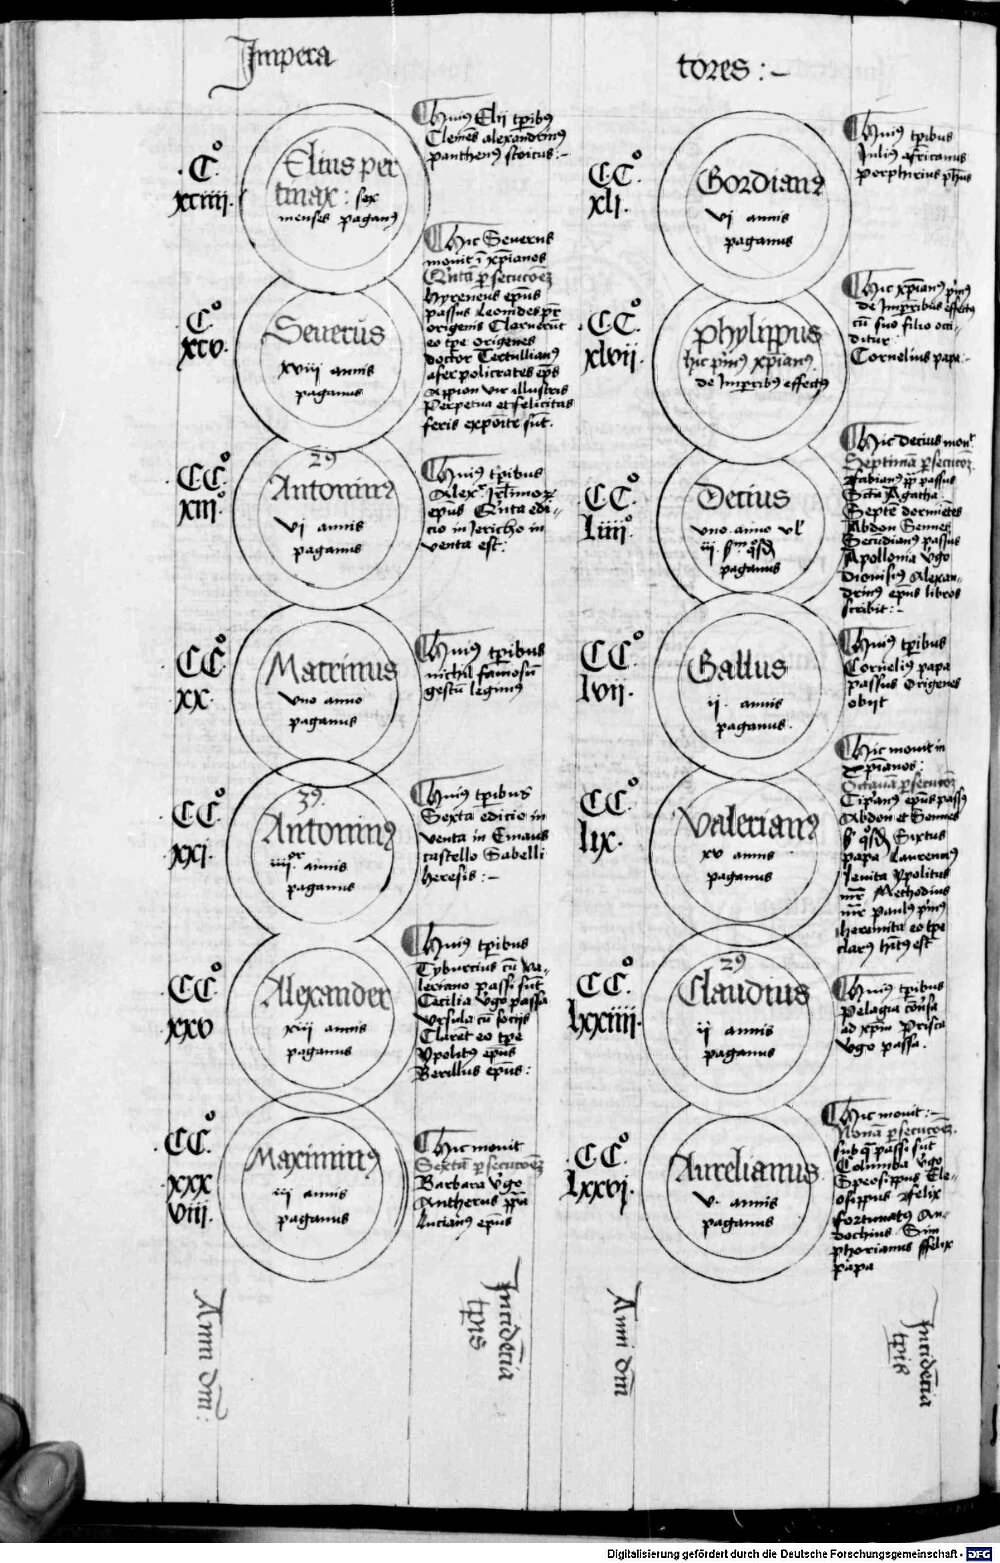 Impera
tores :-
.C.º
xciiii.
Elius per
tinax : sex
menses paganꝰ
Huiꝰ Elij tꝑibꝰ
Clemēs alexandrinꝰ
panthenꝰ stoicus :-
.Cº.
xcv.
Seuerus
xviij annis
paganus
Hic Seuerus
mouit ī xp̄ianos
Qn̄tā ꝑsecucoēꝫ
Hyreneus ep̄us
passus Leonides pr̄
origenis Claruerūt
eo tꝑe origenes
doctor Tertullianꝰ
afer policrates ep̄s
Appion vir illustris
Perpetua et felicitas
feris expoīte sūt.
CCº.
xiii.
29
Antoninꝰ
vj annis
paganus
Huiꝰ tꝑibus
Alexr Jrl̄imoꝝ
ep̄us Qn̄ta edi-
cio in Jericho in
venta est.
CCº.
xx.
Macrinus
vno anno
paganus
Huiꝰ tꝑibus
nichil famosū
gestū legimꝰ
CCº.
xxj.
39.
Antoninꝰ
iiiior annis
paganus
Huiꝰ tꝑibus
Sexta edicio in
venta in Emaus
castello Sabelli
heresis :-
CCº.
xxv
Alexander
xiij annis
paganus
Huiꝰ tꝑibus
Tyburcius cū va-
leriano passi sūt
Cecilia vgo passa
vrsula cū socijs
Clarēt eo tꝑe
ypolitꝰ ep̄us
Berillus ep̄us :
CCº.
xxx
viii.
Maximinꝰ
iij annis
paganus
Hic mouit
Sextā ꝑsecucoēꝫ
Barbara vgo
Antherus pp̄a
Lucianꝰ ep̄us
Anni dm̄ :
Incidēcia
tꝑis
CCº.
xli.
Gordianꝰ
vj annis
paganus
Huiꝰ tꝑibus
Juliꝰ africanus
porphirius ph̄us
CCº.
xlvii.
Phylippus
hic p̄mꝰ xp̄ianꝰ
de Imꝑibꝰ effectꝰ
Hic xp̄ianꝰ p̄mꝰ
de Imꝑibus effectꝰ
cū suo filio occi-
ditur
Cornelius papa :-
CCº.
Liiiiº.
Decius
vno anno vl'
iij. sm qōsd̄
paganus
Hic decius mouit
Septimā ꝑsecucoēꝫ
Fabianꝰ pp̄ passus
Sctā Agatha
Septē dormiētes
Abdon Sennes
Secūdianꝰ passus
Apollonia vgo
Dionisiꝰ Alexan-
drinꝰ ep̄us libros
scribit :-
CCº.
lvii.
Gallus
ij. annis
paganus.
Huiꝰ tꝑibus
Corneliꝰ papa
passus Origenes
obijt
CCº.
lix.
Valerianꝰ
xv annis
paganus
Hic mouit in
Xp̄ianos :
Octauā ꝑsecucoēꝫ
Cipanꝰ ep̄us passꝰ
Abdon et Sennes
sm qōsd̄ Sixtus
papa Laurenciꝰ
leuita ypolitus
mr̄ Methodius
mr̄ paulꝰ p̄mꝰ
heremita eo tꝑe
clarꝰ hītꝰ est
CCº.
lxxiiii.
29
Claudius
ij annis
paganus
Huiꝰ tꝑibus
pelagia cōusa
ad xp̄m Prisca
vgo passa.
CCº.
Lxxvj.
Aurelianus
v. annis
paganus
Hic mouit :-
Nonā ꝑsecucoēꝫ.
sub q̄ passi sūt
Columba vgo
Speosippus Ele-
osippus Felix
Fortunatꝰ An-
dochius Sim
phorianus ffelix
papa
Anni dm̄
Incidēcia
tꝑis
Digitalisierung gefördert durch die Deutsche Forschungsgemeinschaft - DFG